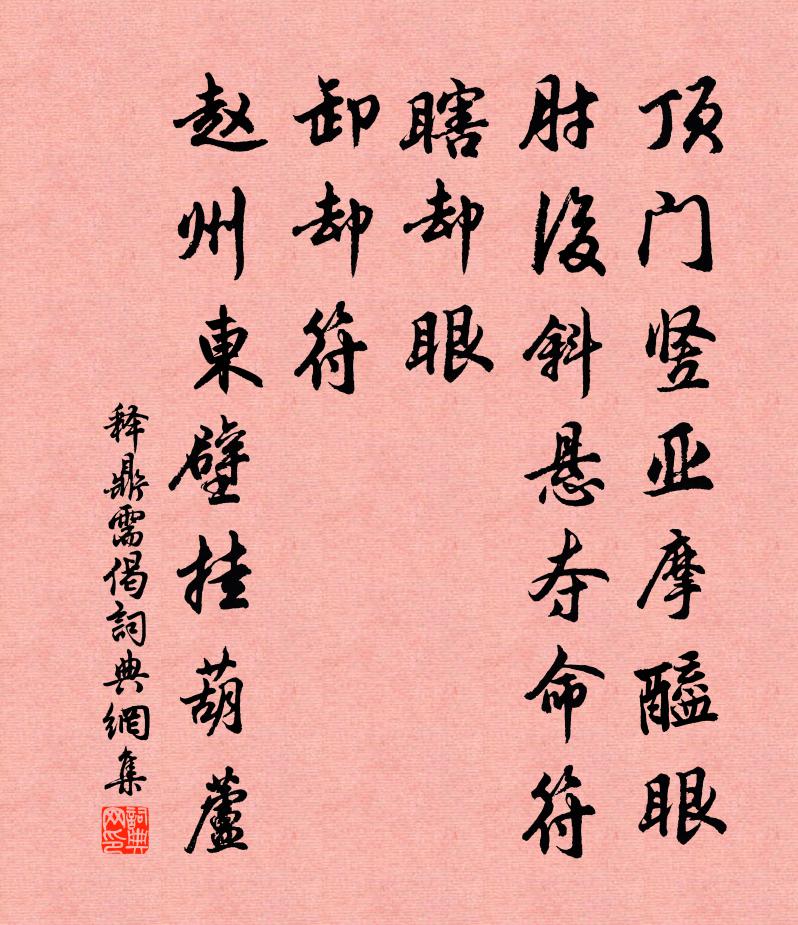 顶门竖亚摩醯眼
肘後斜悬夺命符
瞎却眼
卸却符
赵州東壁挂葫蘆
释鼎需偈詞典網集
詞典网印